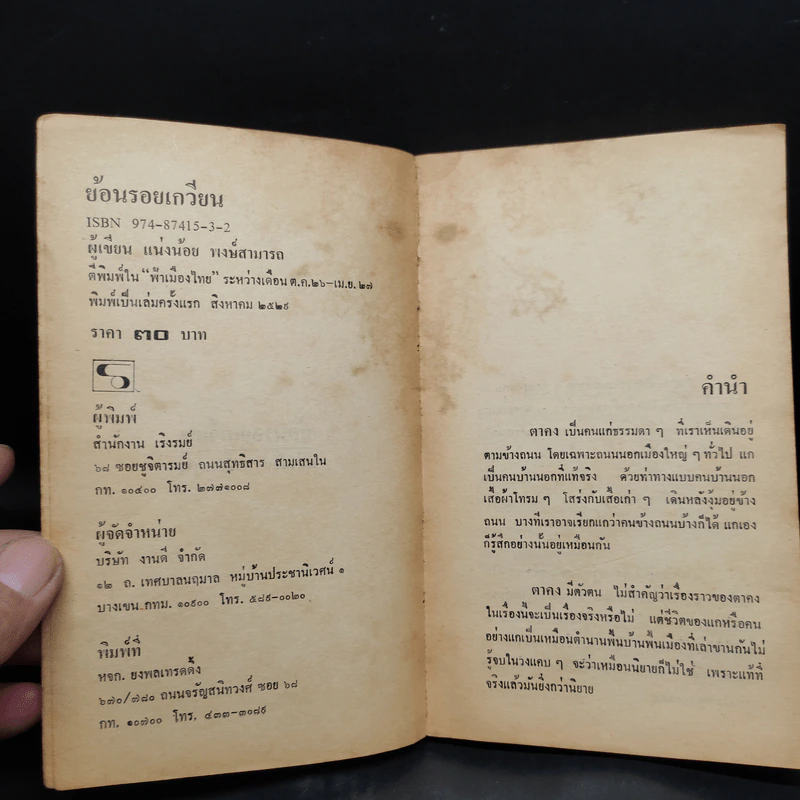 ย้อนรอยเกวียน
ISBN 974-87415-3-2
ผู้เขียน แน่งน้อย พงษ์สามารถ
ตีพิมพ์ใน "ฟ้าเมืองไทย" ระหว่างเดือน ต.ค.๒๖-เม.ย.๒๗
พิมพ์เป็นเล่มครั้งแรก สิงหาคม ๒๕๒๙
ราคา ๓๐ บาท
ผู้พิมพ์
สำนักงาน เริงรมย์
๖๘ ซอยชูจิตารมย์ ถนนสุทธิสาร สามเสนใน
กท. ๑๐๔๐๐ โทร. ๒๗๗๑๐๐๘
ผู้จัดจำหน่าย
บริษัท งานดี จำกัด
๑๒ ถ. เทศบาลนฤมาล หมู่บ้านประชานิเวศน์ ๑
บางเขน กทม. ๑๐๙๐๐ โทร. ๕๘๙-๐๐๒๐
พิมพ์ที่
หจก. ยงพลเทรดดิ้ง
๖๗๐/๗๘๐ ถนนจรัญสนิทวงศ์ ซอย ๖๘
กท. ๑๐๗๐๐ โทร. ๔๓๓-๓๐๘๙
คำนำ
ตาคง เป็นคนแก่ธรรมดา ๆ ที่เราเห็นเดินอยู่
ตามข้างถนน โดยเฉพาะถนนนอกเมืองใหญ่ ๆ ทั่วไป แก
เป็นคนบ้านนอกที่แท้จริง ด้วยท่าทางแบบคนบ้านนอก
เสื้อผ้าโทรม ๆ โสร่งกับเสื้อเก่า ๆ เดินหลังงุ้มอยู่ข้าง
ถนน บางทีเราอาจเรียกแกว่าคนข้างถนนบ้างก็ได้ แกเอง
ก็รู้สึกอย่างนั้นอยู่เหมือนกัน
ตาคง มีตัวตน ไม่สำคัญว่าเรื่องราวของตาคง
ในเรื่องนี้จะเป็นเรื่องจริงหรือไม่ แต่ชีวิตของแกหรือคน
อย่างแกเป็นเหมือนตำนานพื้นบ้านพื้นเมืองที่เล่าขานกันไม่
รู้จบในวงแคบ ๆ จะว่าเหมือนนิยายก็ไม่ใช่ เพราะแท้ที่
จริงแล้วมันยิ่งกว่านิยาย